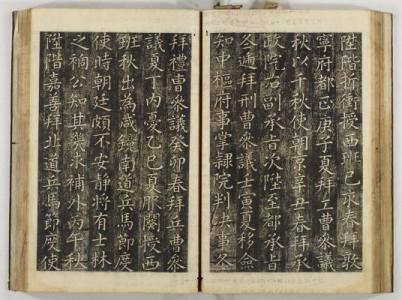 陞階折衝授西班己亥春拜敦
寧府都正庚子夏拜工曹參議
秋以千秋使朝京辛丑春拜承
政院右副承旨次陞至都承旨
冬遞拜刑曹參議壬寅夏移僉
知中樞府事掌隷院判決事冬
拜禮曹參議癸卯春拜兵曹參
議夏丁內憂乙巳夏服闋授西
班秋出為咸鏡南道兵馬節度
使時朝廷頗不安靜將有士林
之禍公知其幾求補外丙午秋
陞階嘉善拜北道兵馬節度使